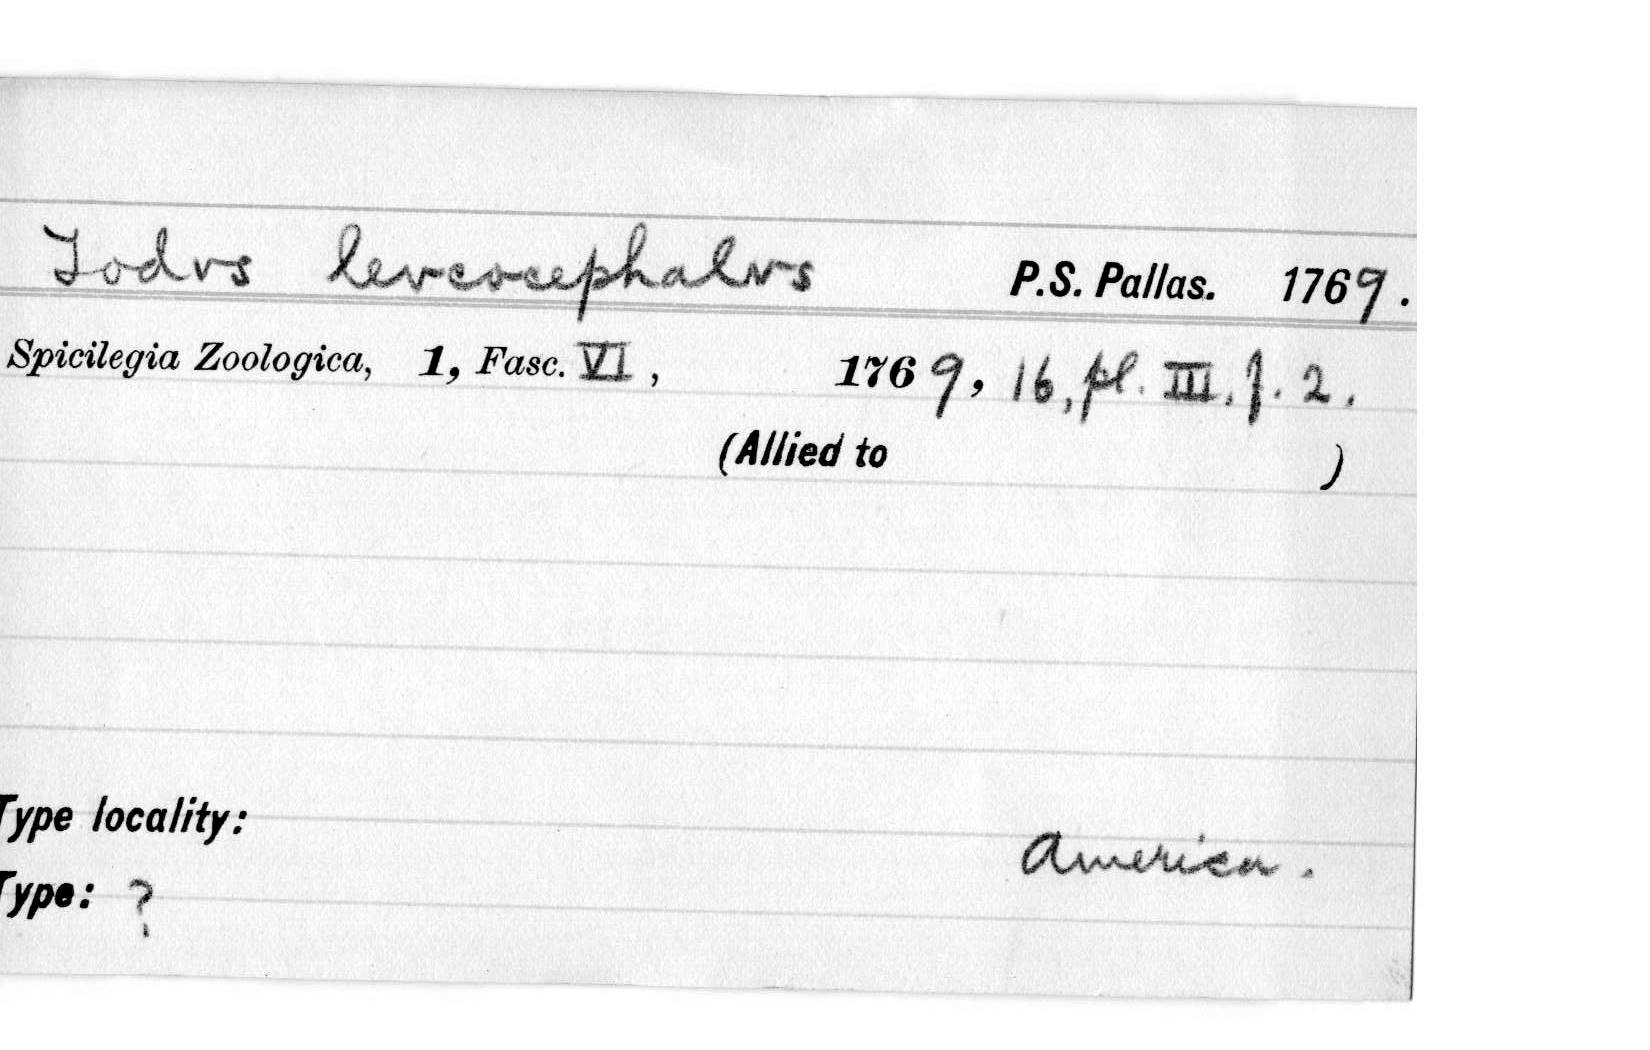 Todus leucocephalus P.S. Pallas. 1769.
Spicilegia Zoologica, 1, Fasc. VI, 1769, 16, pl. III. f. 2.
(Allied to )
Type locality: America.
Type: ?